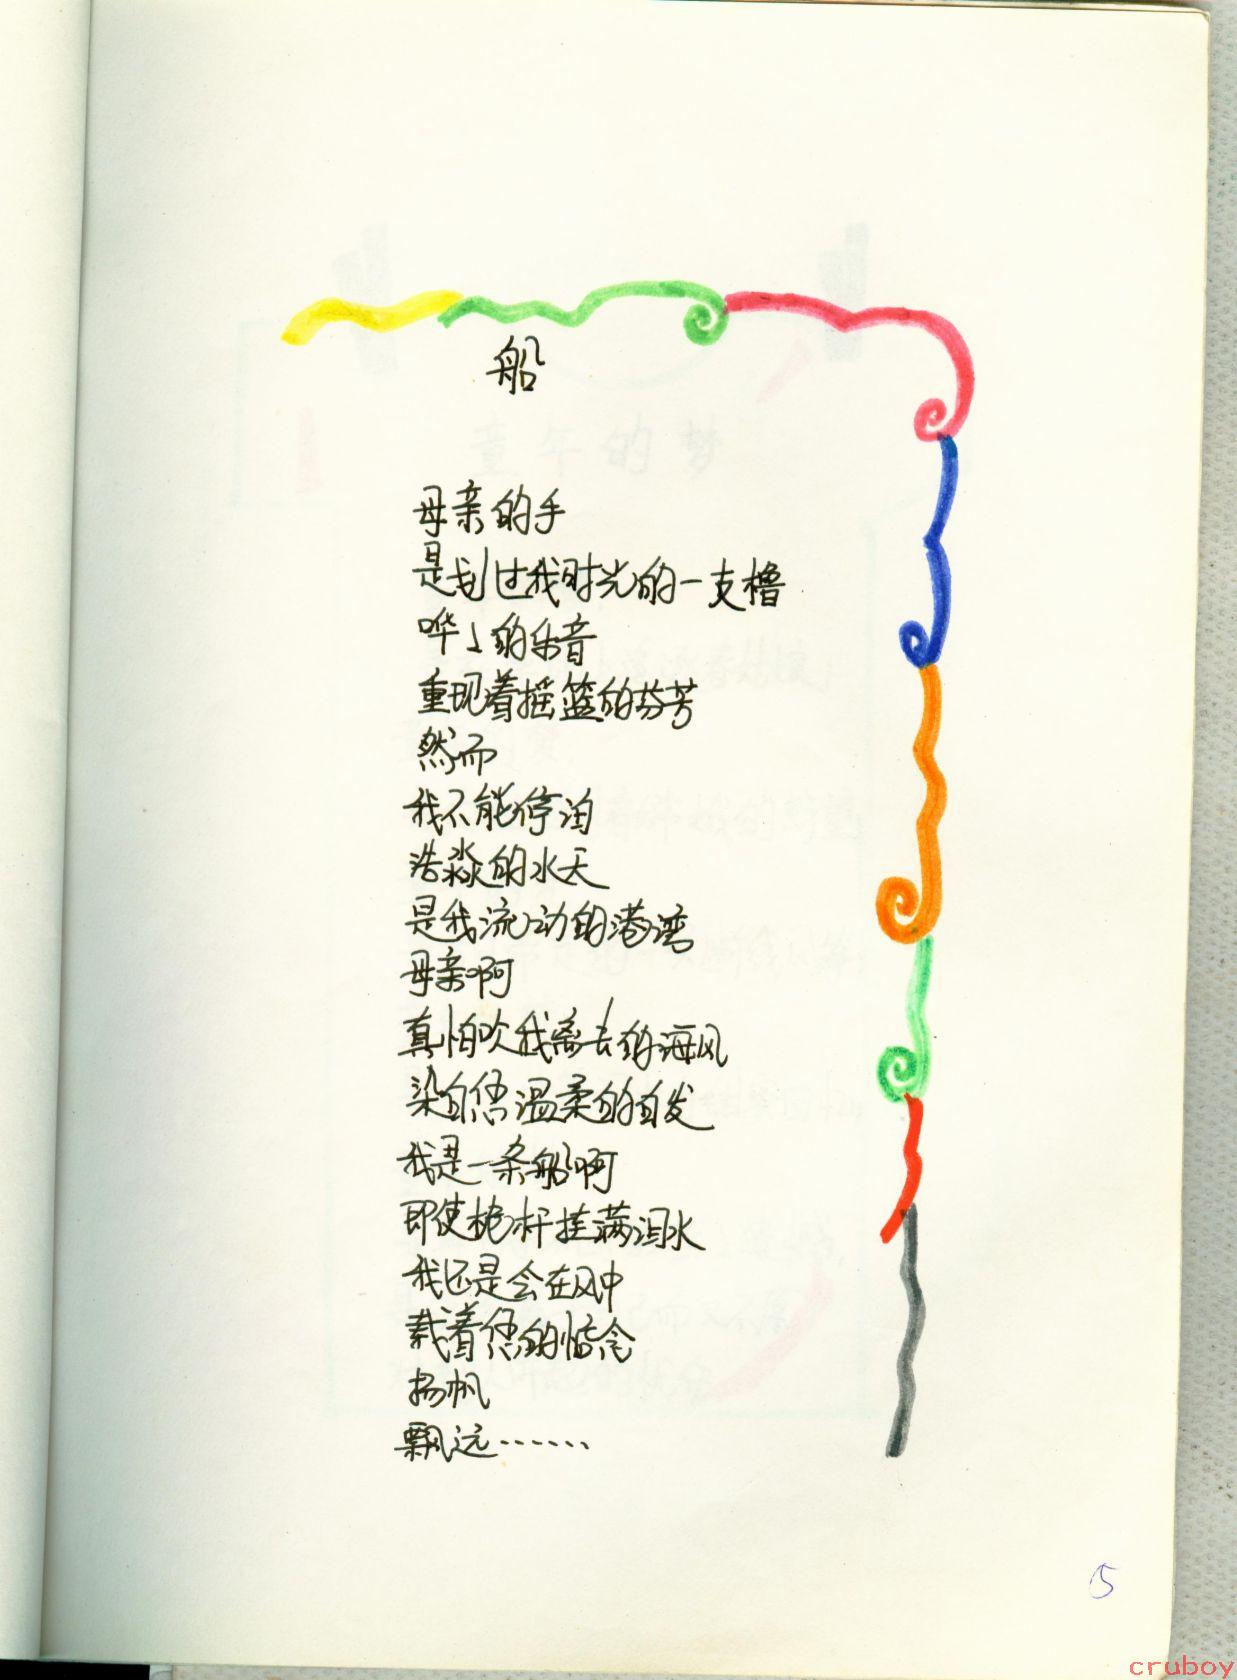 船
母亲的手
是划过我时光的一支橹
哗々的乐音
重现着摇篮的芬芳
然而
我不能停泊
浩淼的水天
是我流动的港湾
母亲啊
真怕吹我离去的海风
染白您温柔的白发
我是一条船啊
即使桅杆挂满泪水
我还是会在风中
载着您的惦念
扬帆
飘远……
5
cruboy